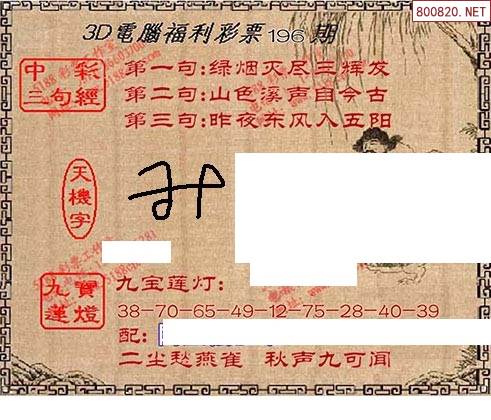 800820.NET
3D電腦福利彩票196期
中彩
三句經
第一句:绿烟灭尽三辉发
第二句:山色溪声自今古
第三句:昨夜东风入五阳
天機字
九寶
蓮燈
九宝莲灯:
38-70-65-49-12-75-28-40-39
配:
二尘愁燕雀 秋声九可闻